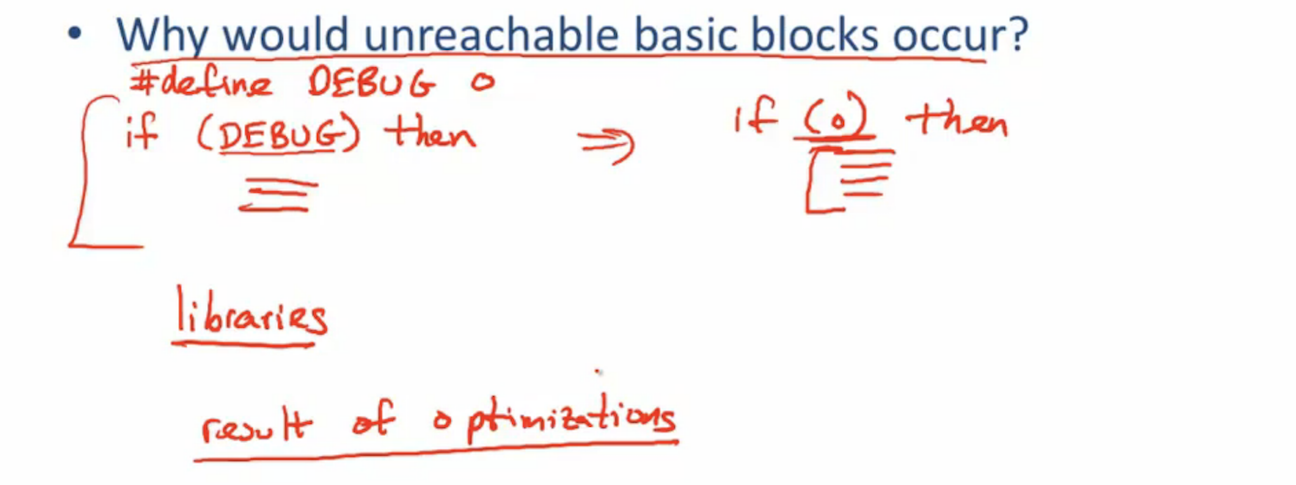 • Why would unreachable basic blocks occur?
#define DEBUG 0
if (DEBUG) then ⇒ if (0) then
libraries
result of optimizations